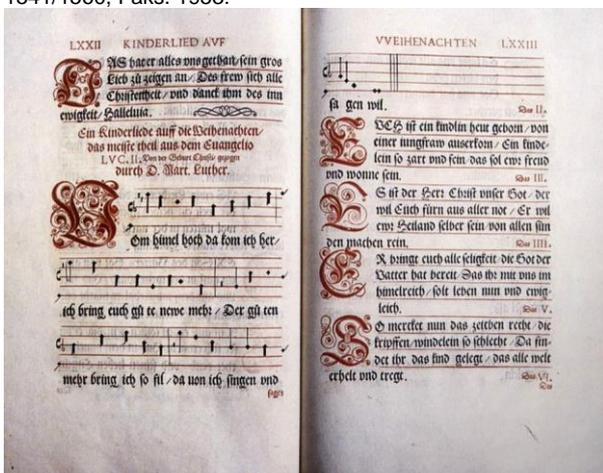 1541/1560, Faks. 1953.
LXXII KINDERLIED AVF
DAS hat er alles vns gethan/sein gros
Lieb zů zeigen an/Des frew sich alle
Christenheit/vnd danck ihm des inn
ewigkeit/Halleluia.
Ein Kinderliede auff die Weihenachten/
das meiste theil aus dem Euangelio
LVC. II. Von der Geburt Christi/ gezogen
durch D. Mart. Luther.
VOm himel hoch da kom ich her/
ich bring euch gů te newe mehr/Der gů ten
mehr bring ich so fil/da von ich singen vnd
sagen
VVEIHENACHTEN LXXIII
sa gen wil.
Das II.
EVCH ist ein kindlin heut geborn/von
einer iungfraw auserkorn/Ein kinde-
lein so zart vnd fein das sol ewr freud
vnd wonne sein.
Das III.
ES ist der Herr Christ vnser Got/der
wil Euch fürn aus aller not/Er wil
ewr Heiland selber sein von allen sün
den machen rein.
Das IIII.
ER bringt euch alle seligkeit die Got der
Vatter hat bereit/Das ihr mit vns im
himelreich/solt leben nun vnd ewig-
leich.
Das V.
SO mercket nun das zeichen recht/die
krippen/windelein so schlecht/Da fin-
det ihr das kind gelegt/das alle welt
erhelt vnd tregt.
Das VI.